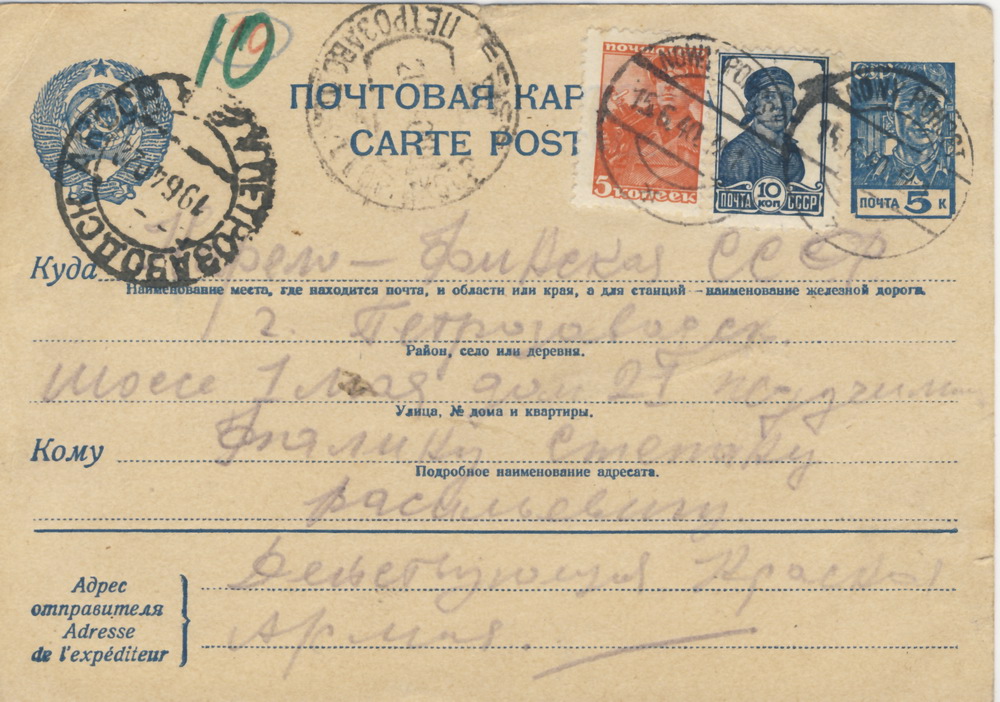 10
ПЕТРОЗАВОДСК
ПОЧТОВАЯ КАР
CARTE POST
5 КОПЕЕК
ПОЧТА 10 КОП СССР
ПОЧТА 5 К
NOWY POHOST
15.6.40
NOWY POHOST
19640
Куда Карело-Финская ССР
Наименование места, где находится почта, и области или края, а для станций—наименование железной дорога.
г. Петрозаводск.
Район, село или деревня.
шоссе 1 мая дом 27
Улица, № дома и квартиры.
Кому Степану
Подробное наименование адресата.
Васильевичу
Адрес отправителя
Adresse de l'expéditeur
Действующая Красная
Армия.